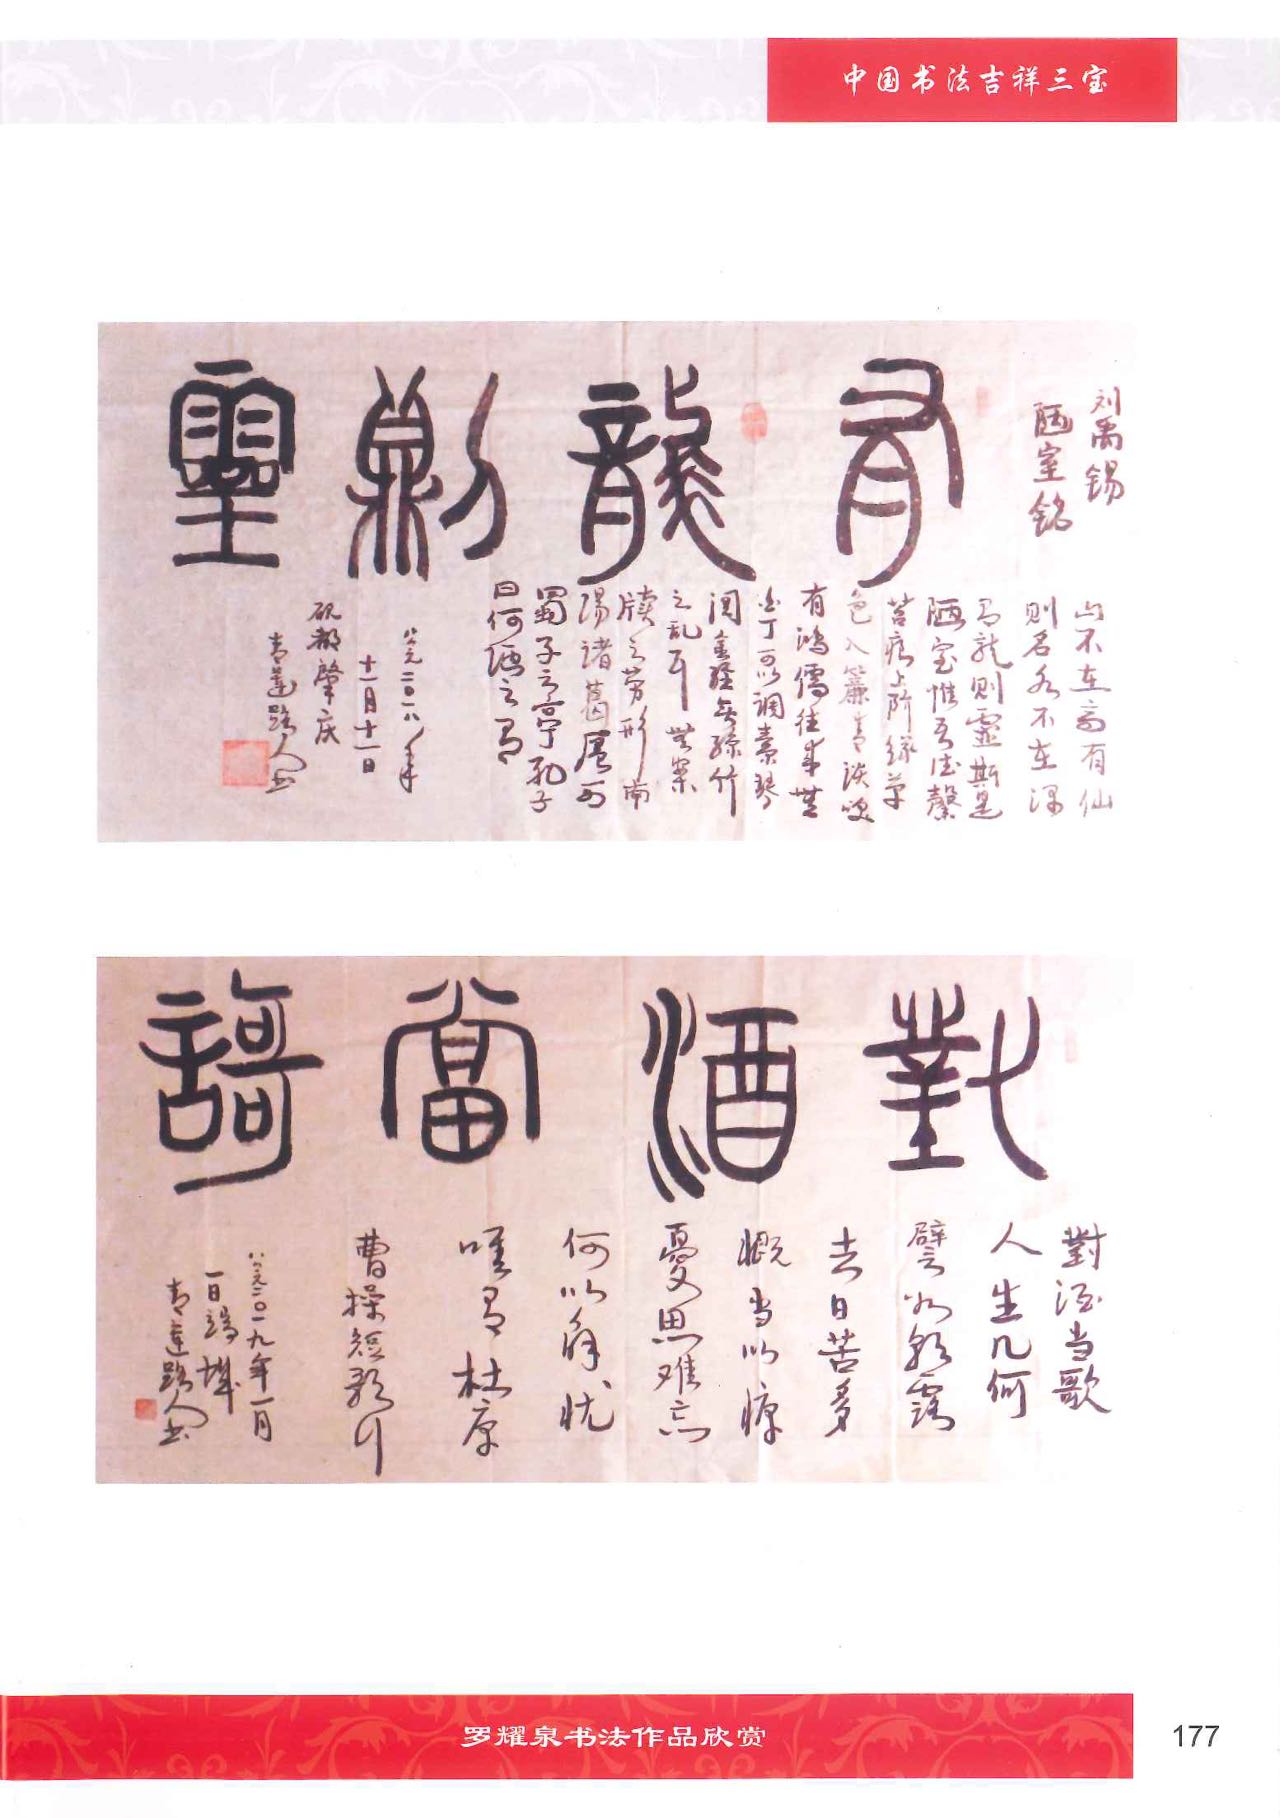 中国书法吉祥三宝
有龍則靈
刘禹锡
陋室铭
山不在高有仙
则名水不在深
有龙则靈斯是
陋室惟吾德馨
苔痕上阶绿草
色入簾青谈笑
有鸿儒往来無
白丁可以调素琴
阅金經無丝竹
之乱耳無案
牍之劳形南
阳诸葛廬西
蜀子云亭孔子
曰何陋之有
公元二〇一八年
十一月十一日
砚都肇庆
青莲路人书
對酒當謌
對酒当歌
人生几何
譬如朝露
去日苦多
慨当以慷
憂思难忘
何以解忧
唯有杜康
曹操短歌行
公元二〇一九年一月
一日端城
青莲路人书
罗耀泉书法作品欣赏
177